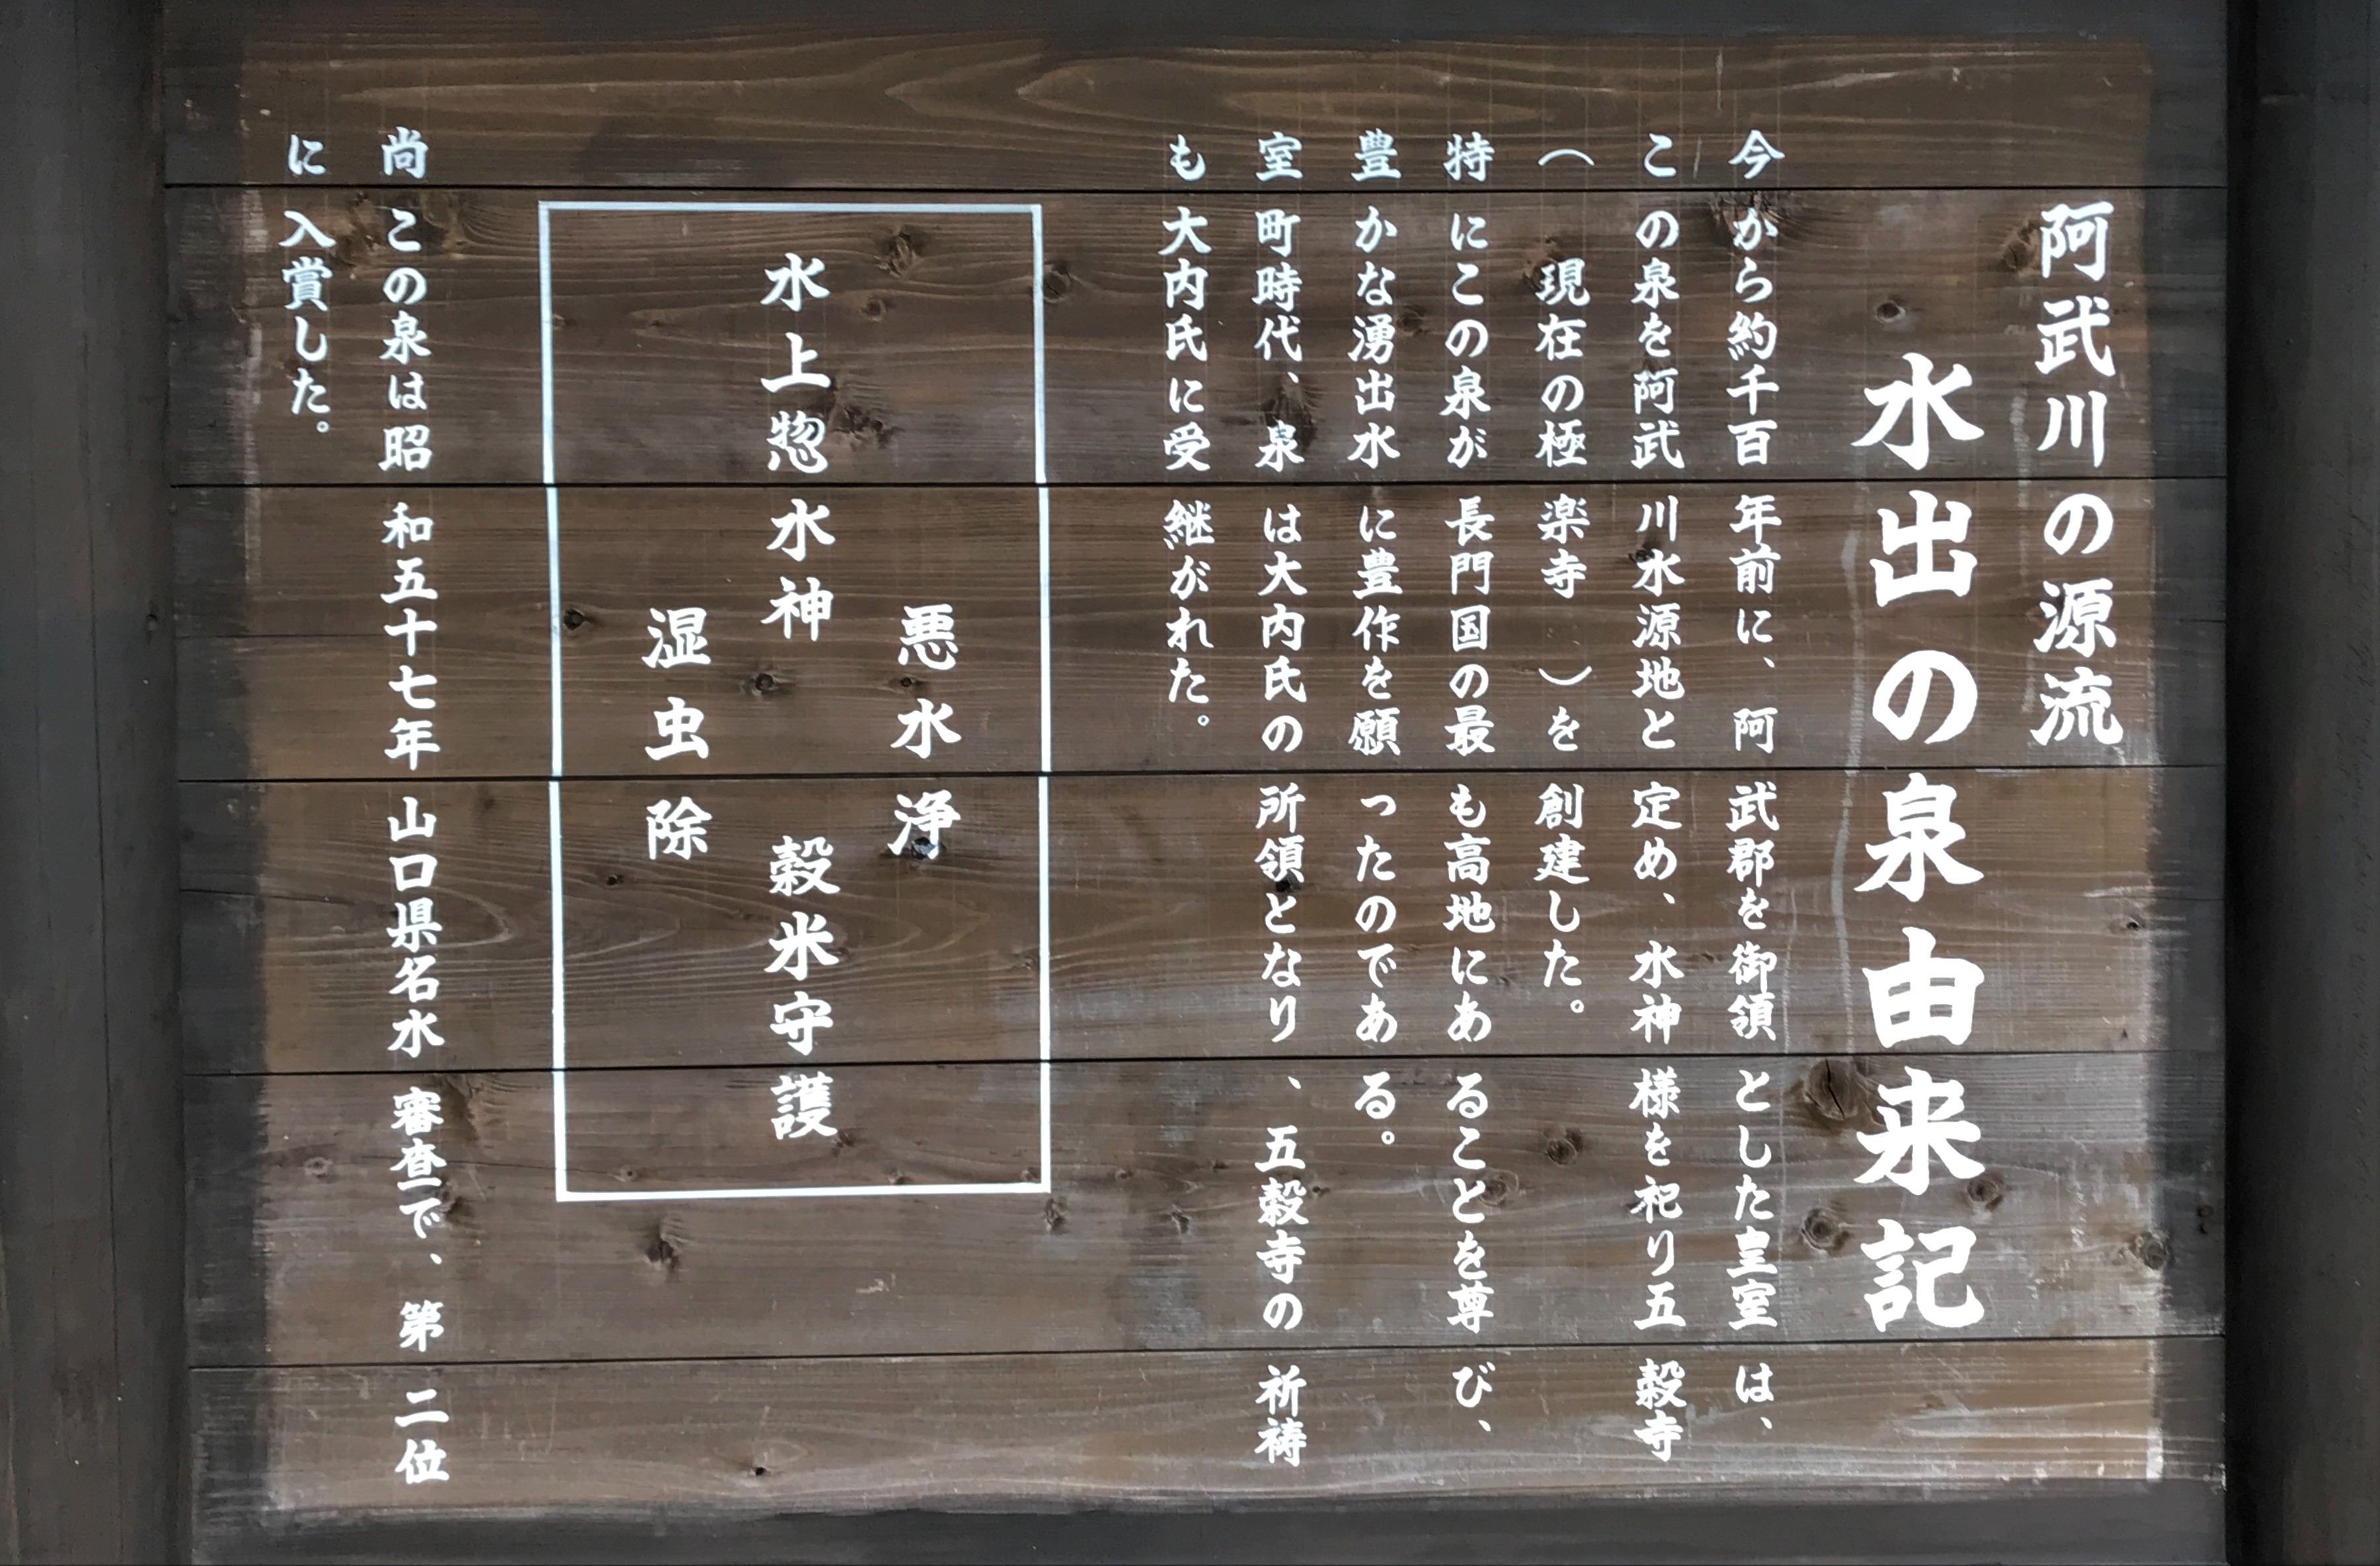 阿武川の源流
水出の泉由来記
今から約千百年前に、阿武郡を御領とした皇室は、
この泉を阿武川水源地と定め、水神様を祀り五穀寺
（現在の極楽寺）を創建した。
特にこの泉が長門国の最も高地にあることを尊び、
豊かな湧出水に豊作を願ったのである。
室町時代、泉は大内氏の所領となり、五穀寺の祈祷
も大内氏に受継がれた。
悪水浄
水上惣水神　穀米守護
湿虫除
尚この泉は昭和五十七年山口県名水審査で、第二位
に入賞した。